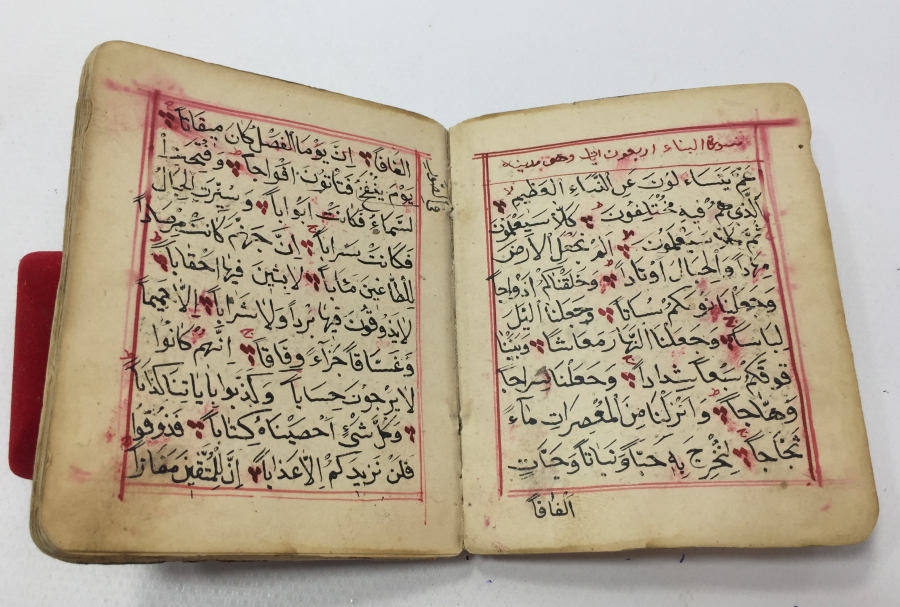 سورة النباء اربعون اية وهى مدينه
عَمَّ يَتَسَاءَ لُونَ عَنِ النَّبَاءِ الْعَظِيمِ
الَّذِى هُمْ فِيهِ مُخْتَلِفُونَ كَلَّا سَيَعْلَمُونَ
ثُمَّ كَلَّا سَيَعْلَمُونَ اَلَمْ نَجْعَلِ الْاَرْضَ
مِهَاداً وَالْجِبَالَ اَوْتَاداً وَخَلَقْنَاكُمْ اَزْوَاجاً
وَجَعَلْنَا نَوْمَكُمْ سُبَاتاً وَجَعَلْنَا الَّيْلَ
لِبَاساً وَجَعَلْنَا النَّهَارَ مَعَاشاً وَبَنَيْنَا
فَوْقَكُمْ سَبْعاً شِدَاداً وَجَعَلْنَا سِرَاجاً
وَهَّاجاً وَاَنْزَلْنَا مِنَ الْمُعْصِرَاتِ مَاءً
ثَجَّاجاً لِنُخْرِجَ بِهِ حَبّاً وَنَبَاتاً وَجَنَّاتٍ
اَلْفَافاً
اَلْفَافاً اِنَّ يَوْمَ الْفَصْلِ كَانَ مِيقَاتاً
يَوْمَ يُنْفَخُ فَتَأْتُونَ اَفْوَاجاً وَفُتِحَتِ
السَّمَاءُ فَكَانَتْ اَبْوَاباً وَسُيِّرَتِ الْجِبَالُ
فَكَانَتْ سَرَاباً اِنَّ جَهَنَّمَ كَانَتْ مِرْصَاداً
لِلطَّاغِينَ مَئَاباً لَابِثِينَ فِيهَا اَحْقَاباً
لَايَذُوقُونَ فِيهَا بَرْداً وَلَا شَرَاباً اِلَّا حَمِيماً
وَغَسَّاقاً جَزَاءً وِفَاقاً اِنَّهُمْ كَانُوا
لَايَرْجُونَ حِسَاباً وَكَذَّبُوا بِاٰيَاتِنَا كِذَّاباً
وَكُلَّ شَيْءٍ اَحْصَيْنَاهُ كِتَاباً فَذُوقُوا
فَلَنْ نَزِيدَكُمْ اِلَّا عَذَاباً اِنَّ لِلْمُتَّقِينَ مَفَازاً